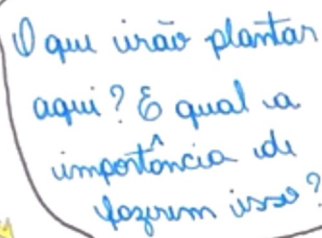 O que irão plantar
aqui? E qual a
importância de
fazerem isso?